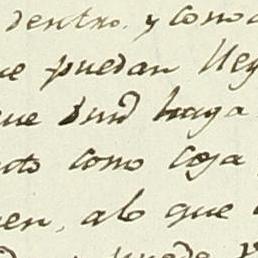 dentro. y cono
ue puedan lleg
que Vmd haga
nto como coja
en, alo que
puede